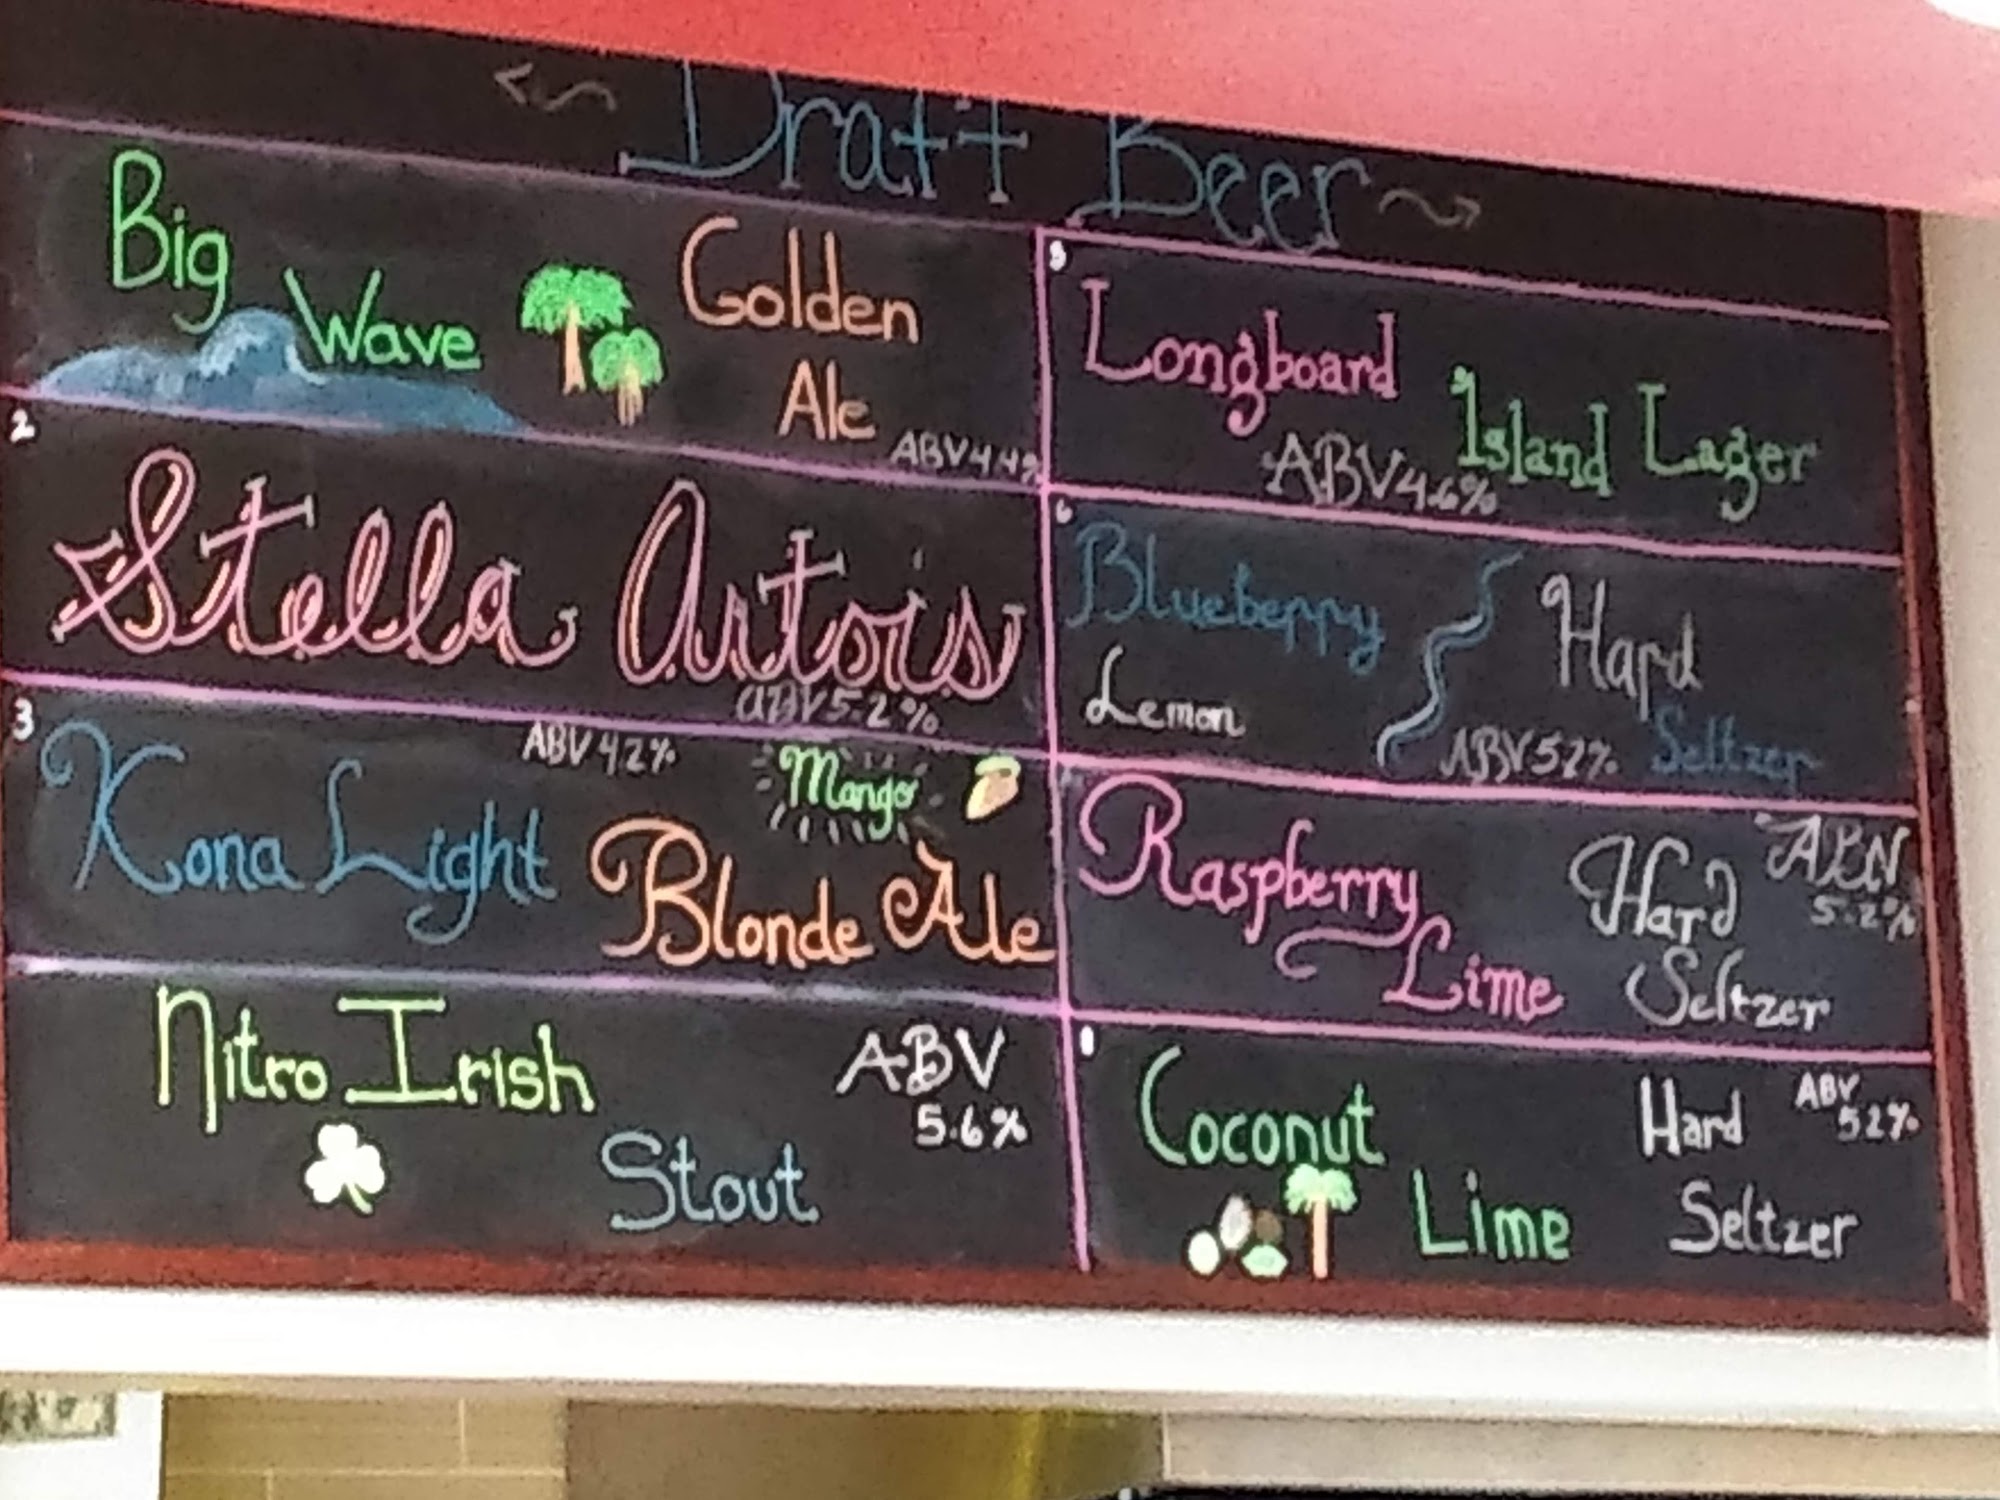 Draft Beer
Big Wave Golden Ale
ABV 4.4%
2
Stella Artois
ABV 5.2%
3
Kona Light
ABV 4.2%
Mango
Blonde Ale
Nitro Irish Stout
ABV 5.6%
5
Longboard Island Lager
ABV 4.6%
6
Blueberry Lemon
Hard Seltzer
ABV 5.2%
Raspberry Lime
Hard Seltzer
ABV 5.2%
8
Coconut Lime
Hard Seltzer
ABV 5.2%